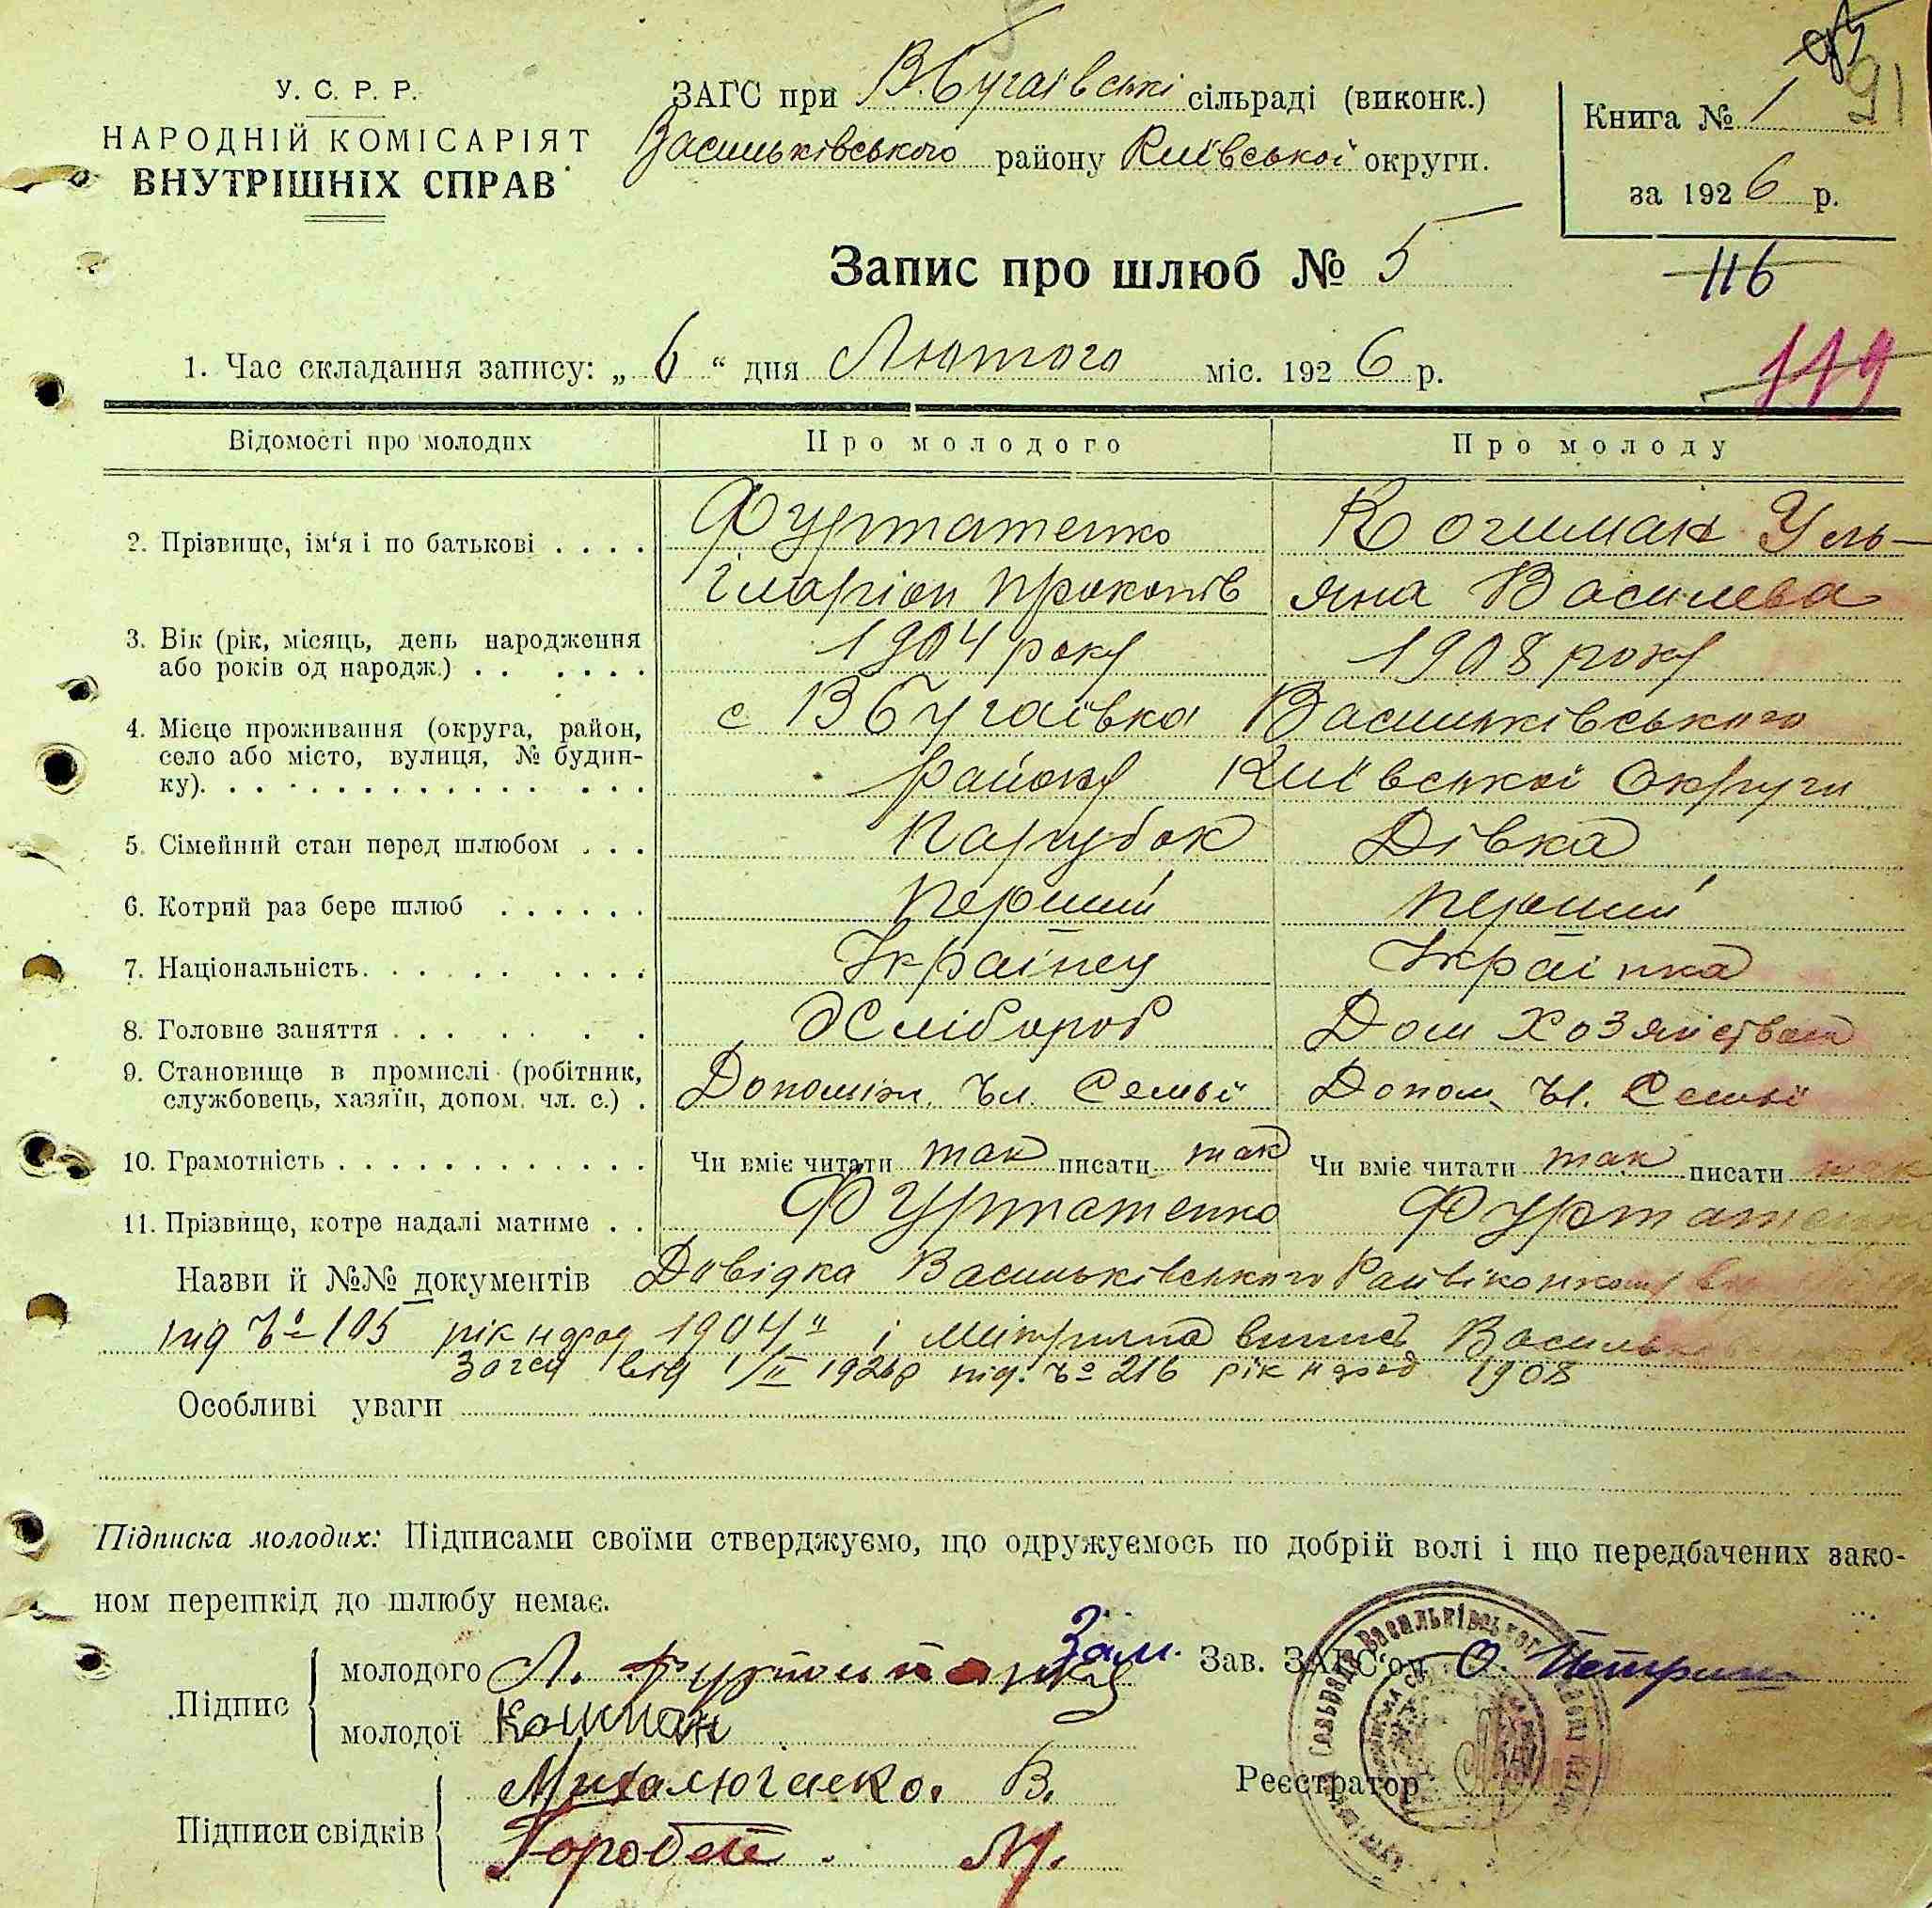 У. С. Р. Р.
НАРОДНІЙ КОМІСАРІЯТ
ВНУТРІШНІХ СПРАВ
ЗАГС при В.Бугаївські сільраді (виконк.)
Васильківського району Київської округи.
Книга № 1
91
за 1926 р.
Запис про шлюб № 5
116
119
1. Час складання запису: „ 6 “ дня Лютого міс. 1926 р.
Відомості про молодих Про молодого Про молоду
2. Прізвище, ім‘я і по батькові . . . . Фуртатенко Кочиман Уль-
Іларіон Прокопів яна Василева
3. Вік (рік, місяць, день народження
або років од народж.) . . . . . . 1904 року 1908 року
4. Місце проживання (округа, район,
село або місто, вулиця, № будин-
ку). с В Бугаївка Васильківського
району Київської Округи
5. Сімейний стан перед шлюбом . . . Парубок Дівка
6. Котрий раз бере шлюб . . . . . . Перший перший
7. Національність. . . . . . . . . Українец Українка
8. Головне заняття . . . . . . . Хлібороб Дом Хозяйством
9. Становище в промислі (робітник,
службовець, хазяїн, допом. чл. с.) . Допоміж. Чл. Семьї Допом. Чл. Семьї
10. Грамотність . . . . . . . . . . . . Чи вміє читати так писати так Чи вміє читати так писати так
11. Прізвище, котре надалі матиме . . Фуртатенко Фуртатенко
Назви й №№ документів Довідка Васильківського Райвіконкому
під № 105 рік народ 1904 " і Метрична випись
Загса від 1/II 1926р під. № 216 рік народ 1908
Особливі уваги
Підписка молодих: Підписами своїми стверджуємо, що одружуємось по добрій волі і що передбачених зако-
ном перешкід до шлюбу немає.
Підпис
молодого Л. Фуртатенко
молодої Кошман
Зам. Зав. ЗАГС‘ом О. Петрин
Підписи свідків
Михалюченко. В.
Горобей. М.
Реєстратор